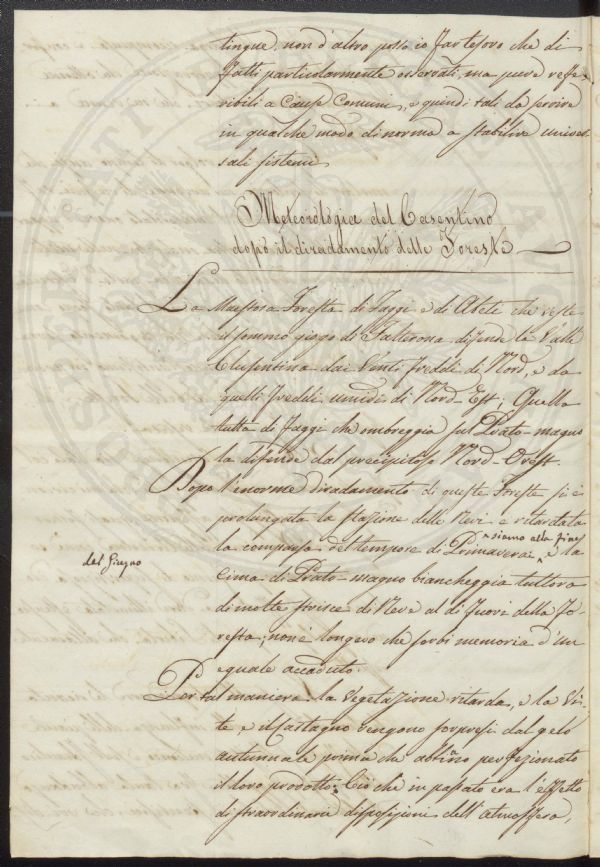 tingue, non d'altro posso io far tesoro che di
fatti particolarmente osservati, ma pure reffe-
ribili a Cause Comuni, e quindi tali da servire
in qualche modo di norma a stabilire univer-
sali sistemi
Meteorologia del Casentino
dopo il diradamento delle Foreste
La Maestosa Foresta di Faggi e di Abeti che veste
il sommo giogo di Falterona difende la Valle
Clusentina dai Venti freddi di Nord, e da
quelli freddi umidi di Nord-Est; Quella
tutta di Faggi che ombreggia sul Prato-magno
la difende dal precipitoso Nord-Ovest.
Dopo l'enorme diradamento di queste Foreste si è
prolungata la stazione delle Nevi e ritardata
la comparsa del tempore di Primavera: siamo alla fine
del Giugno
e la
cima di Prato-magno biancheggia tuttora
di molte strisce di Neve al di fuori della Fo-
resta; non è longevo che serbi memoria d'un
eguale accaduto.
Per tal maniera la Vegetazione ritarda, e la Vi-
te e il Castagno vengono sorpresi dal gelo
autunnale prima che abbino perfezionato
il loro prodotto. Ciò che in passato era l'effetto
di straordinarie disposizioni dell'atmosfera,